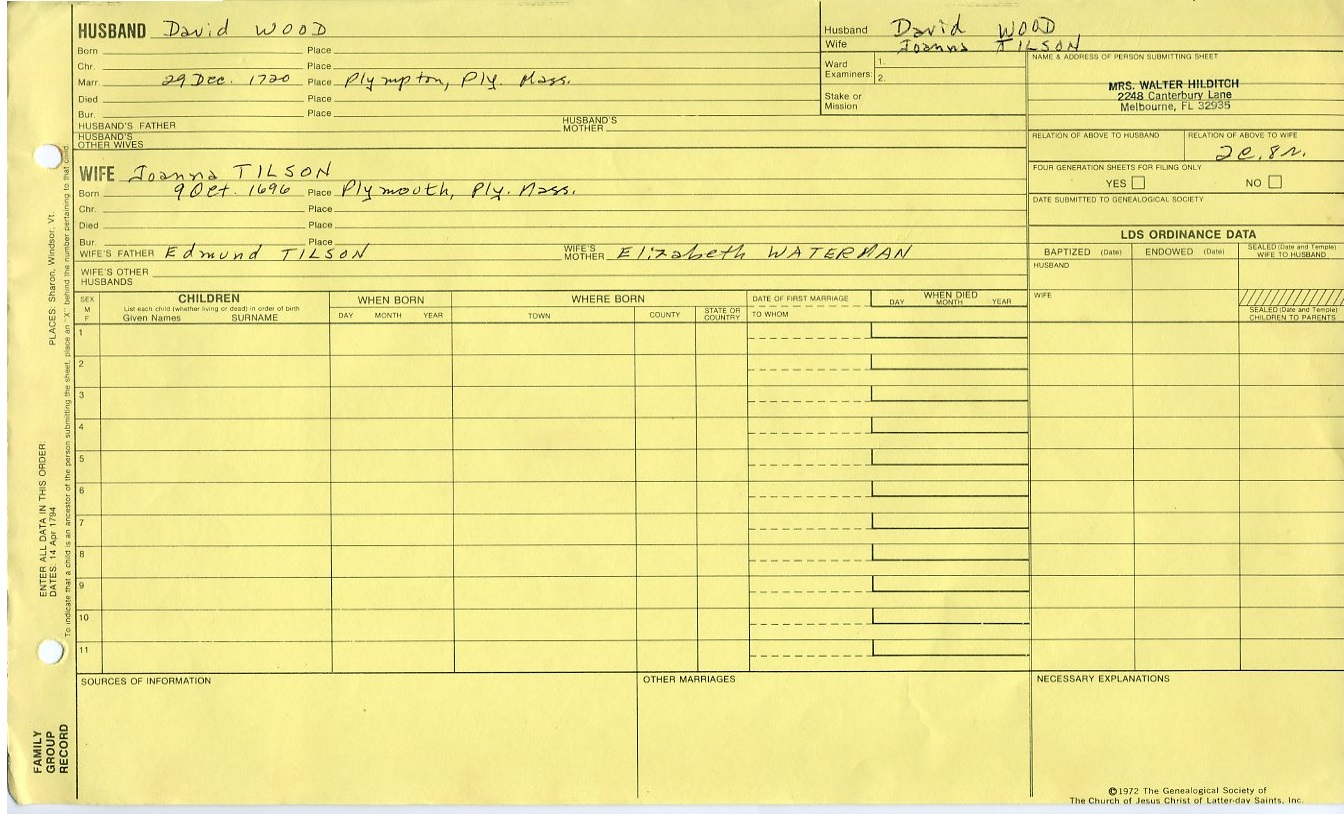 HUSBAND David WOOD
Born Place
Chr. Place
Marr. 29 Dec. 1720 Place Plympton, Ply. Mass.
Died Place
Bur. Place
HUSBAND'S FATHER HUSBAND'S MOTHER
HUSBAND'S OTHER WIVES
Husband David WOOD
Wife Joanna TILSON
Ward Examiners: 1.
2.
Stake or Mission
NAME & ADDRESS OF PERSON SUBMITTING SHEET
MRS. WALTER HILDITCH
2248 Canterbury Lane
Melbourne, FL 32935
RELATION OF ABOVE TO HUSBAND RELATION OF ABOVE TO WIFE
2c. 8r.
FOUR GENERATION SHEETS FOR FILING ONLY
YES NO
DATE SUBMITTED TO GENEALOGICAL SOCIETY
WIFE Joanna TILSON
Born 9 Oct. 1696 Place Plymouth, Ply. Mass.
Chr. Place
Died Place
Bur. Place
WIFE'S FATHER Edmund TILSON WIFE'S MOTHER Elizabeth WATERMAN
WIFE'S OTHER HUSBANDS
LDS ORDINANCE DATA
BAPTIZED (Date) ENDOWED (Date) SEALED (Date and Temple) WIFE TO HUSBAND
HUSBAND
WIFE
SEALED (Date and Temple) CHILDREN TO PARENTS
SEX M F
CHILDREN
List each child (whether living or dead) in order of birth
Given Names SURNAME
WHEN BORN
DAY MONTH YEAR
WHERE BORN
TOWN COUNTY STATE OR COUNTRY
DATE OF FIRST MARRIAGE
TO WHOM
WHEN DIED
DAY MONTH YEAR
1
2
3
4
5
6
7
8
9
10
11
SOURCES OF INFORMATION OTHER MARRIAGES NECESSARY EXPLANATIONS
PLACES: Sharon, Windsor, Vt.
ENTER ALL DATA IN THIS ORDER:
DATES: 14 Apr 1794
To indicate that a child is an ancestor of the person submitting the sheet, place an "X" behind the number pertaining to that child.
FAMILY
GROUP
RECORD
©1972 The Genealogical Society of
The Church of Jesus Christ of Latter-day Saints, Inc.